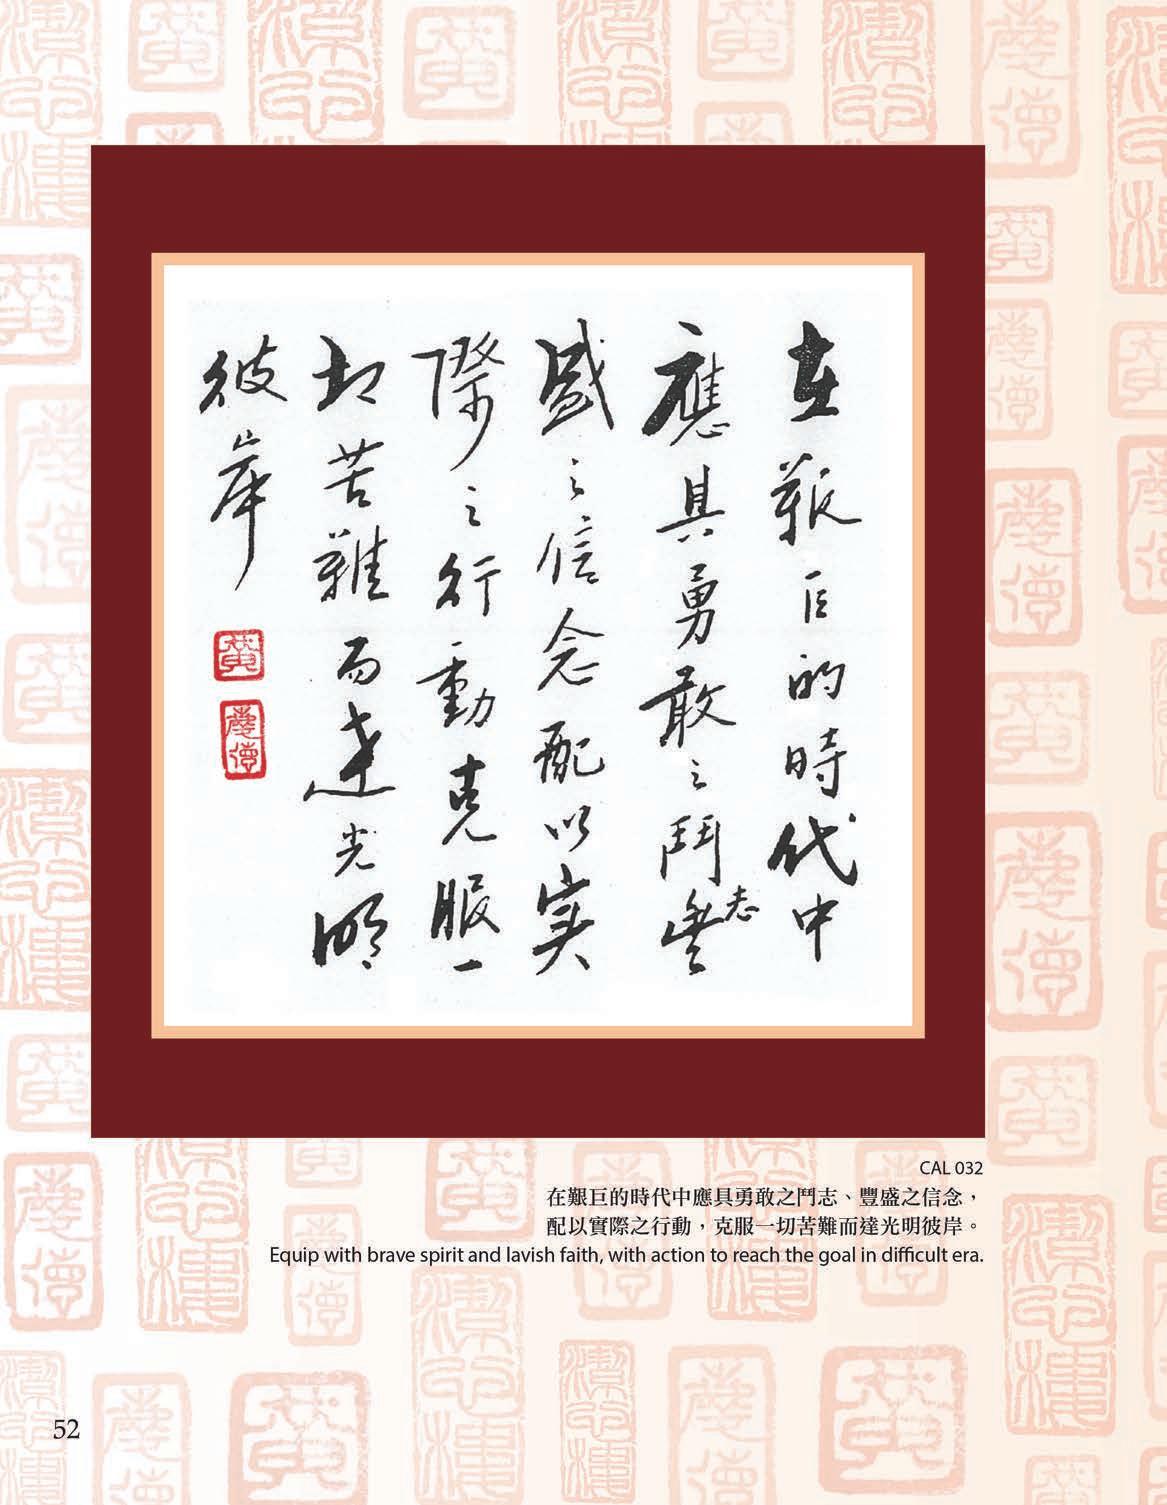 在艱巨的時代中
應具勇敢之鬥志豐
盛之信念配以实
際之行動克服一
切苦難而達光明
彼岸
黃
CAL 032
在艱巨的時代中應具勇敢之鬥志、豐盛之信念，
配以實際之行動，克服一切苦難而達光明彼岸。
Equip with brave spirit and lavish faith, with action to reach the goal in difficult era.
52